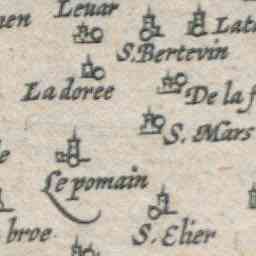 Leuar
S. Bertevin
La doree
De la f
S. Mars
Le pomain
broe
S. Elier